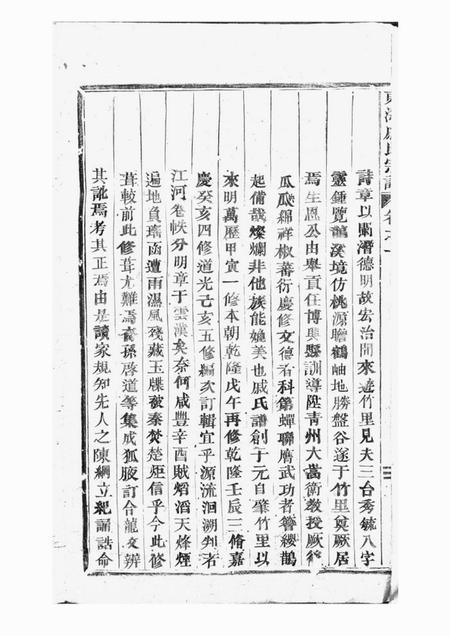 東海戚氏宗譜 卷之一
詩章以闡潛德明故宏治間來遊竹里見夫三台秀毓八字
靈鍾覽鵲溪境仿桃源瞻鶴岫地勝盤谷遂于竹里奠厥居
焉生匡公由舉貢任博興縣訓導陞青州大嵩衛教授厥後
瓜瓞綿祥椒蕃衍慶修文德者科第蟬聯廣武功者簪纓鵲
起備哉燦爛非他族能媲美也戚氏譜創于元自肇竹里以
來明萬歷甲寅一修本朝乾隆戊午再修乾隆壬辰三脩嘉
慶癸亥四修道光己亥五修編次訂輯宜乎源流洄溯判若
江河卷帙分明章于雲漢矣奈何咸豐辛酉賊熖滔天烽煙
遍地負瑤函遭雨濕風殘藏玉牒被秦焚楚炬信乎今此修
葺較前此修葺尤難焉裔孫啓道等集成狐腋訂合龍文辨
其訛焉考其正焉由是讀家規知先人之陳綱立紀誦誥命